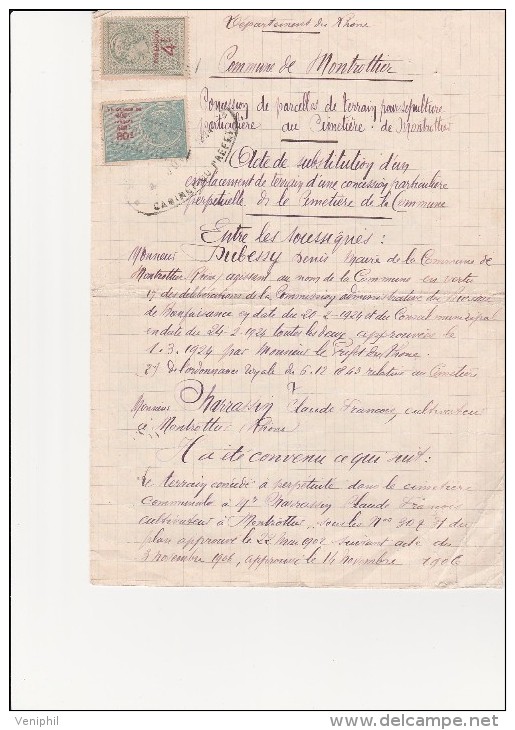 Département du Rhône
Commune de Montrottier
Concession de parcelles de terrain pour sépulture
particulière au Cimetière de Montrottier
Acte de substitution d'un
emplacement de terrain d'une concession particulière
perpétuelle de le Cimetière de la Commune
Entre les soussignés :
Monsieur Dubessy Denis Maire de la Commune de
Montrottier Rhône, agissant au nom de la Commune en vertu
1º des délibérations de la Commission administrative du Bureau
de Bienfaisance en date du 20-2-1924 et du Conseil municipal
en date du 24-2-1924 toutes les deux approuvées le
1-3-1924 par Monsieur le Préfet du Rhône.
2º de l'ordonnance royale du 6-12-1843 relative aux Cimetières
Monsieur Claude François, cultivateur
à Montrottier Rhône
Il a été convenu ce qui suit :
Le terrain concédé à perpétuité dans le cimetière
communale à Mr Claude François
cultivateur à Montrottier, sous les Nos 30 & 31 du
plan approuvé le 22 Mai 1902 suivant acte du
3 novembre 1906, approuvé le 14 novembre 1906
CABINET DU PREFET
Veniphil
http://www.delcampe.net